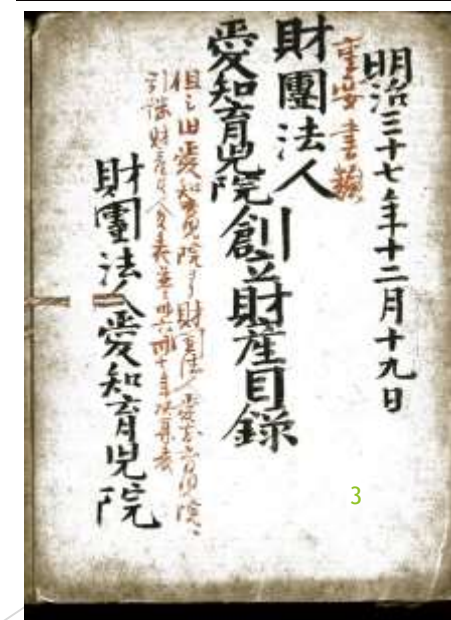 明治三十七年十二月十九日
重要書類
財團法人
愛知育児院創立財産目録
但シ旧愛知育児院ヨリ財団法人愛知育児院
引継財産
財團法人愛知育児院
3